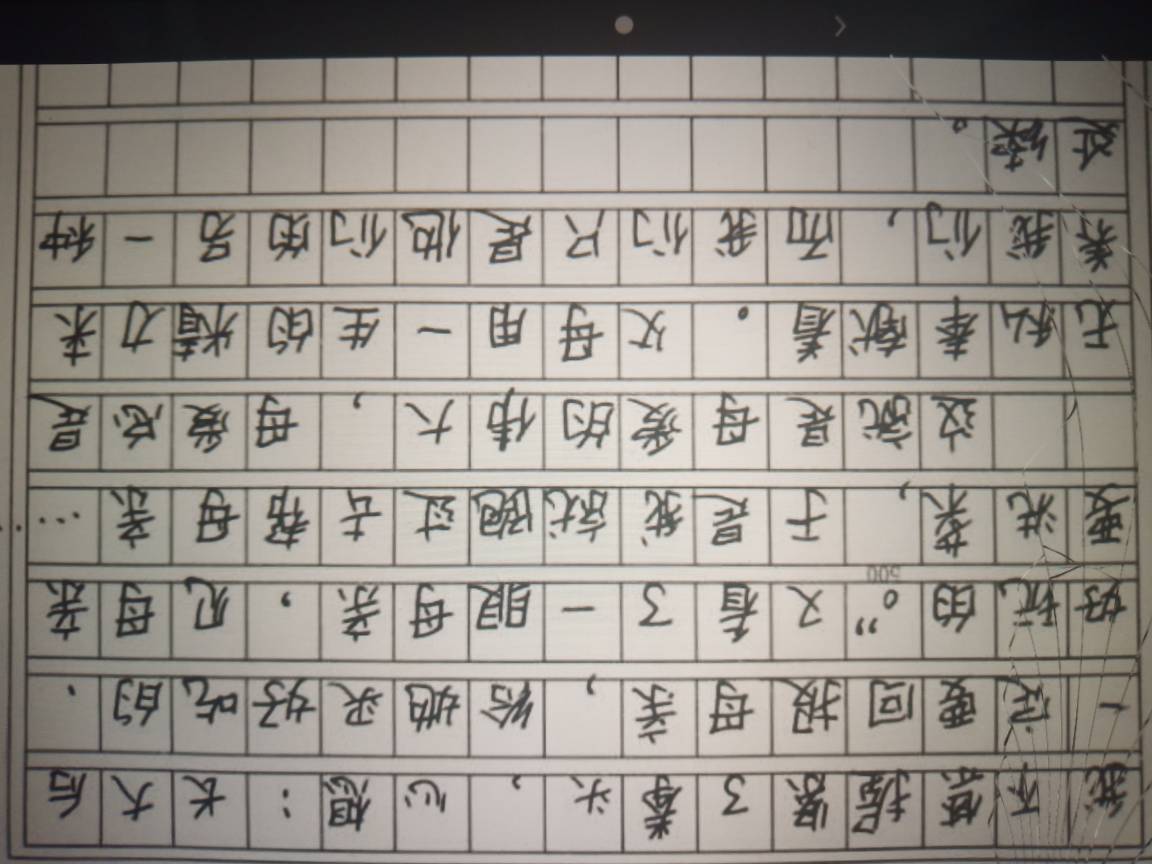 我不禁握紧了拳头，心想：长大后
一定要回报母亲，给她买好吃的、
好玩的。”又看了一眼母亲，见母亲
500
要洗菜，于是我就跑过去帮母亲……
这就是母爱的伟大，母爱总是
无私奉献着。父母用一生的精力来
养我们，而我们只是他们的另一种
延续。